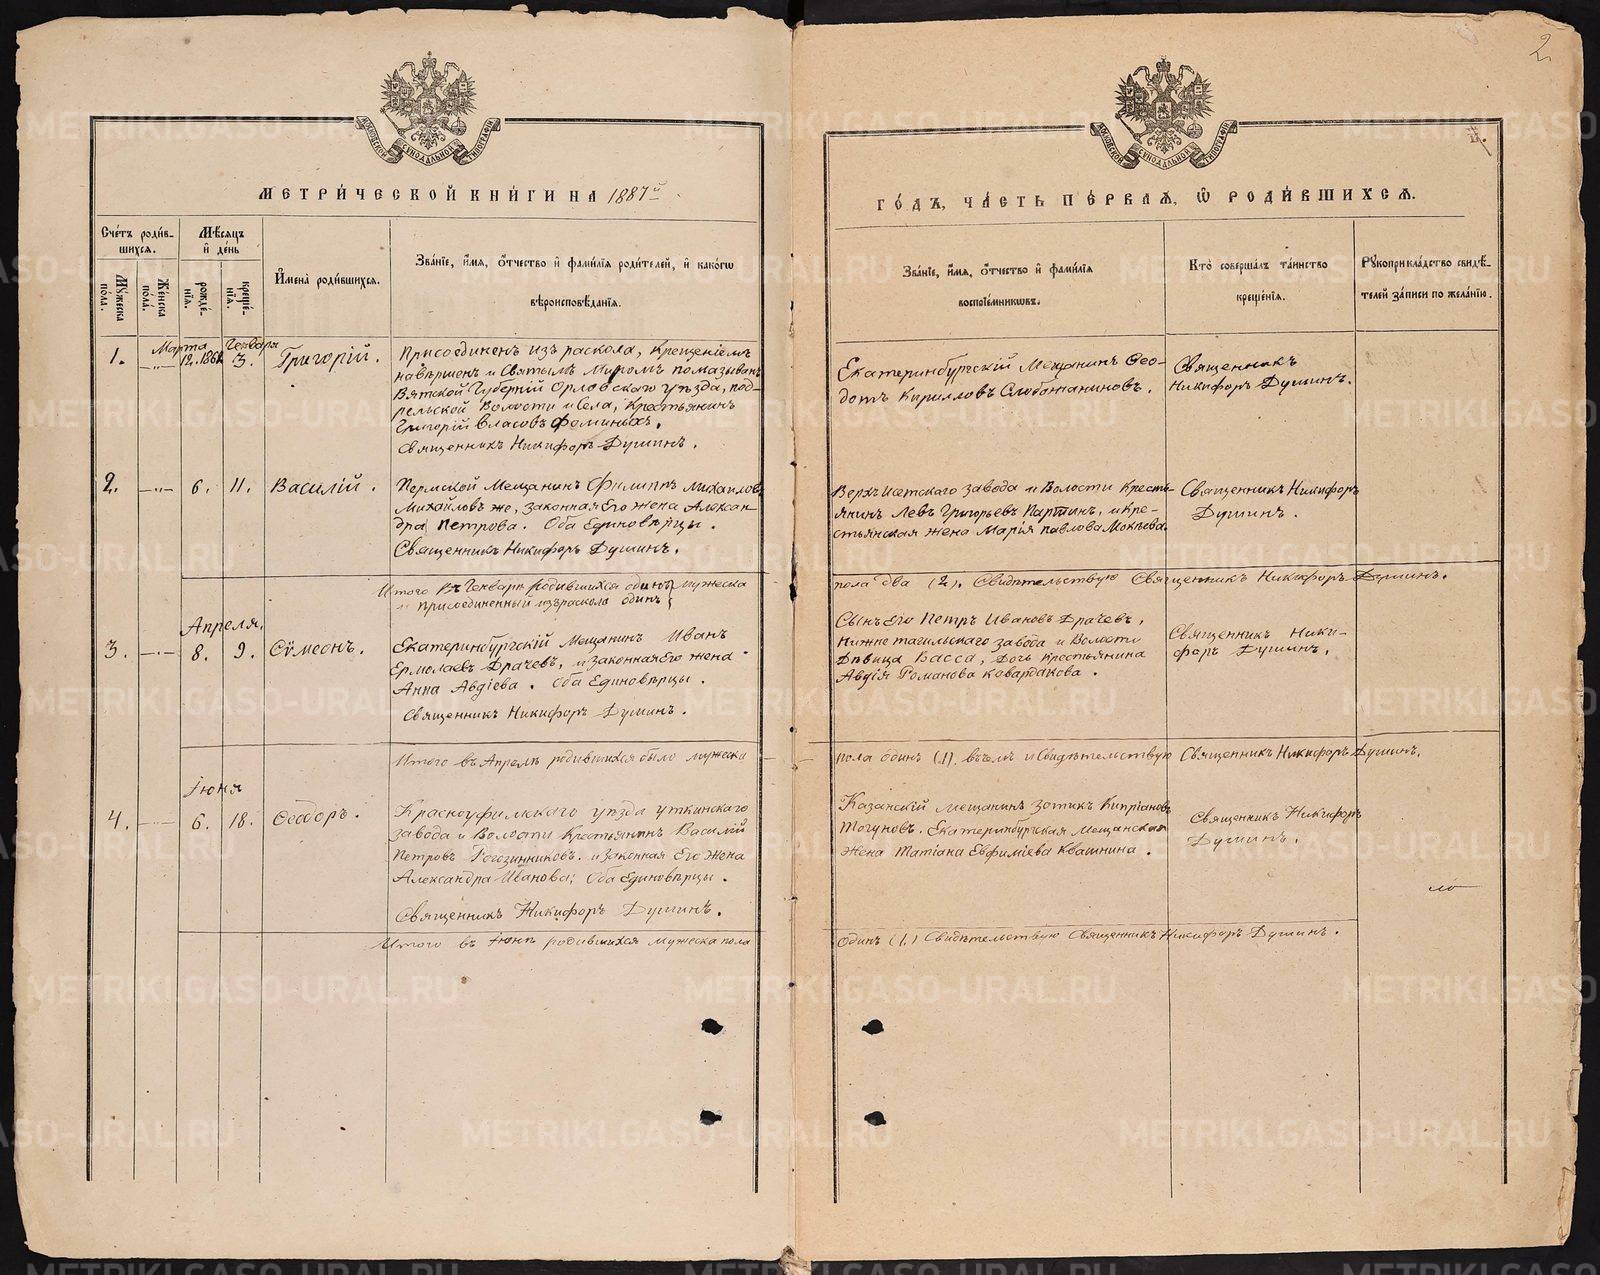 2
МОСКОВСКОЙ СѴНОДАЛЬНОЙ ТИПОГРАФІИ
МОСКОВСКОЙ СѴНОДАЛЬНОЙ ТИПОГРАФІИ
МЕТРИ́ЧЕСКОЙ КНИ́ГИ НА 1887й
ГО́ДЪ, ЧА́СТЬ ПЕ́РВАѦ, Ѽ РОДИ́ВШИХСѦ.
Сче́тъ роди́в-
шихсѧ.
Мꙋ́жеска по́ла.
Же́нска по́ла.
Мѣ́сѧцъ
и҆ де́нь
рожде́-
нїѧ.
креще́-
нїѧ.
И҆мена̀ роди́вшихсѧ.
Зва́нїе, и҆́мѧ, ѻ҆́тчество и҆ фами́лїѧ роди́телей, и҆ како́гѡ
вѣроисповѣ́данїѧ.
Зва́нїе, и҆́мѧ, ѻ҆́тчество и҆ фами́лїѧ
воспрїе́мникѡвъ.
Кто̀ соверша́лъ та́инство
креще́нїѧ.
Рꙋкоприкла́дство свидѣ́-
телей за́писи по жела́нїю.
1.
Марта Генваря
12. 1862 3. Григорій.
Присоединенъ изъ раскола, Крещеніемъ
навѣршенъ и Святымъ Миромъ помазыванъ
Вятской Губерніи Орловскаго уѣзда, под-
рельской Волости и Села, Крестьянинъ
Григорій Власовъ Фоминыхъ.
Священникъ Никифоръ Душинъ.
Екатеринбургскій Мещанинъ Ѳео-
дотъ Кирилловъ Слобожаниновъ.
Священникъ
Никифоръ Душинъ.
2. —„— 6. 11. Василій.
Пермской Мещанинъ Филиппъ Михаиловъ
Михайловъ же, законная Его жена Алексан-
дра Петрова. Оба Единовѣрцы.
Священникъ Никифоръ Душинъ.
Верхъ Исетскаго завода и Волости Кресть-
янинъ Левъ Григорьевъ Партинъ, и кре-
стьянская жена Марія Павлова Мокѣева
Священникъ Никифоръ
Душинъ.
Итого Въ Генварѣ родившихся одинъ мужеска
и присоединенный изъ раскола одинъ
пола два (2). Свидѣтельствую Священникъ Никифоръ Душинъ.
Апрѣля.
3. —„— 8. 9. Сѵмеонъ.
Екатеринбургскій Мещанинъ Иванъ
Ермолаевъ Драчевъ, и законная Его жена
Анна Авдіева. Оба Единовѣрцы.
Священникъ Никифоръ Душинъ.
Сынъ Его Петръ Ивановъ Драчевъ,
Нижнетагильскаго завода и Волости
Дѣвица Васса, Дочь крестьянина
Авдія Романова Ковардакова.
Священникъ Ники-
форъ Душинъ.
Итого въ Апрѣлѣ родившихся было мужеска
пола одинъ (1). въ чемъ и Свидѣтельствую Священникъ Никифоръ Душинъ.
Іюня
4. 6. 18. Ѳеодоръ.
Красноуфимскаго уѣзда уткинскаго
завода и Волости Крестьянинъ Василій
Петровъ Рогозинниковъ. и законная Его жена
Александра Иванова; Оба Единовѣрцы.
Священникъ Никифоръ Душинъ.
Казанскій Мещанинъ Зотикъ Кипріановъ
Могуновъ. Екатеринбургская Мещанская
жена Татіана Евфиміева Квашнина.
Священникъ Никифоръ
Душинъ.
Итого въ Іюнѣ родившихся мужеска пола
Одинъ (1.) Свидѣтельствую Священникъ Никифоръ Душинъ.
METRIKI.GASO-URAL.RU